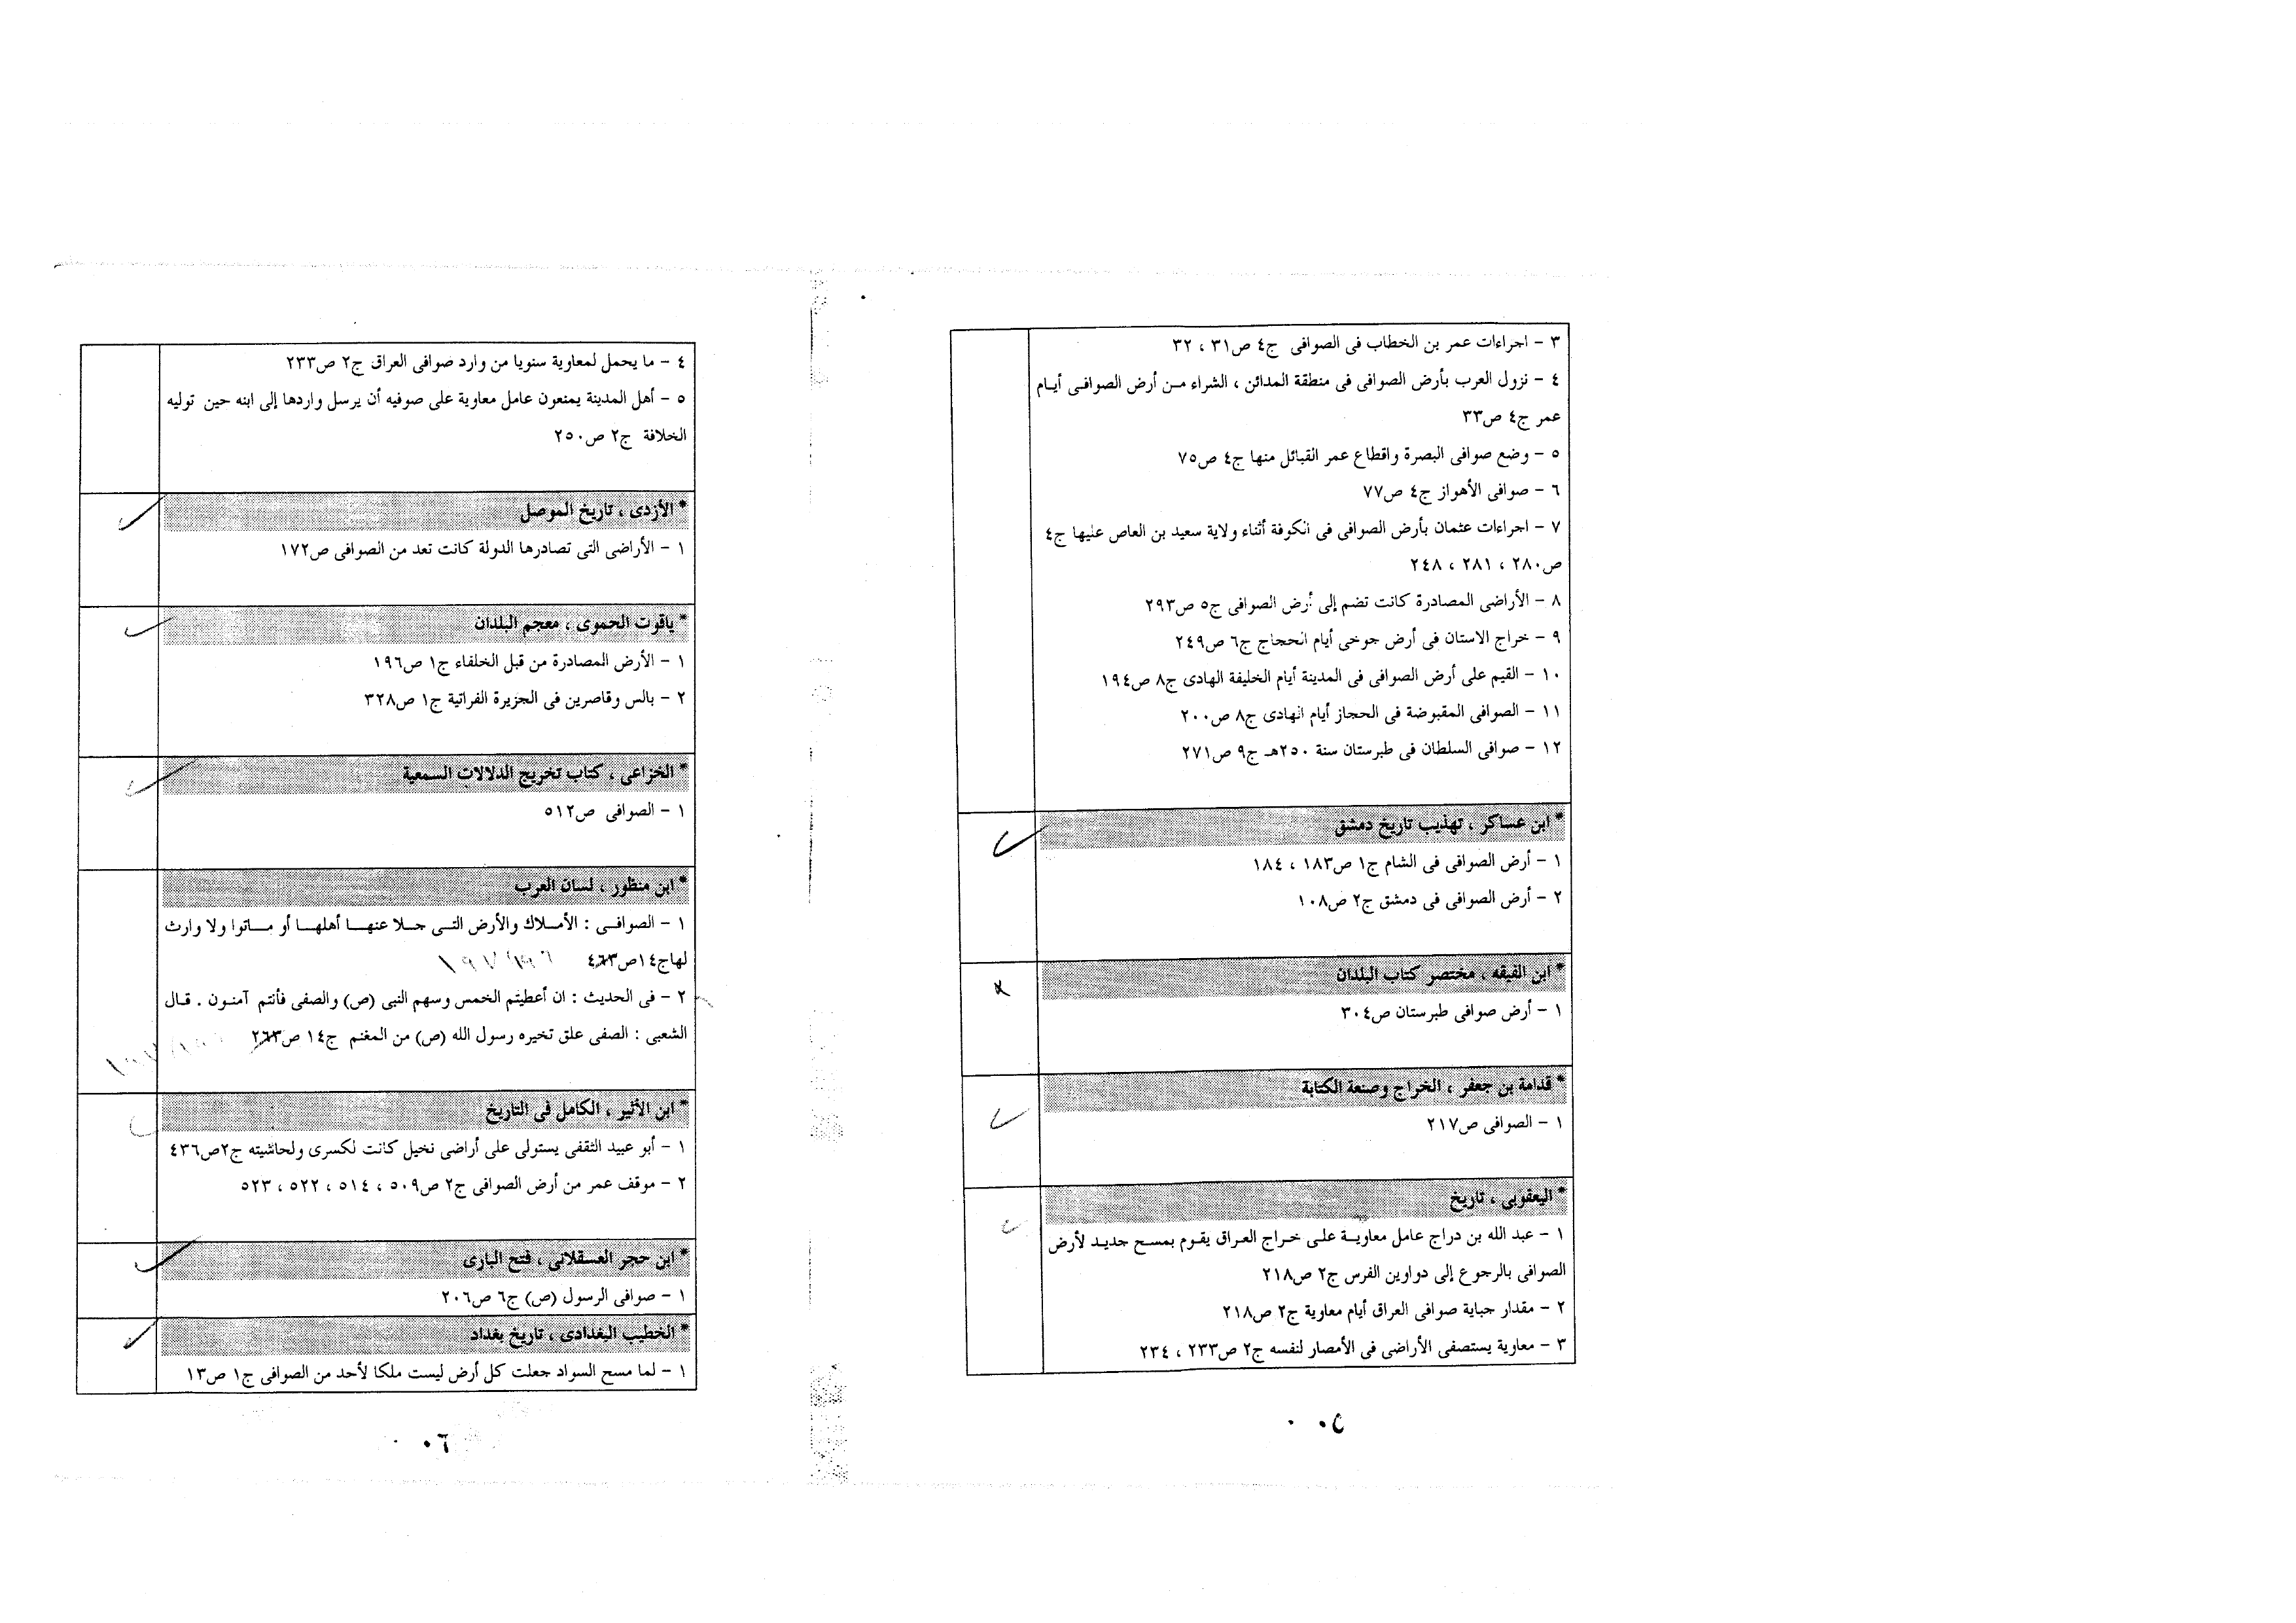 ٣ - اجراءات عمر بن الخطاب فى الصوافى ج٤ ص٣١ ، ٣٢
٤ - نزول العرب بأرض الصوافى فى منطقة المدائن ، الشراء مـن أرض الصوافـى أيـام
عمر ج٤ ص٣٣
٥ - وضع صوافى البصرة واقطاع عمر القبائل منها ج٤ ص٧٥
٦ - صوافى الأهواز ج٤ ص٧٧
٧ - اجراءات عثمان بأرض الصوافى فى الكوفة أثناء ولاية سعيد بن العاص عليها ج٤
ص٢٨٠ ، ٢٨١ ، ٢٤٨
٨ - الأراضى المصادرة كانت تضم إلى أرض الصوافى ج٥ ص٢٩٣
٩ - خراج الاستان فى أرض جوخى أيام الحجاج ج٦ ص٢٤٩
١٠ - القيم على أرض الصوافى فى المدينة أيام الخليفة الهادى ج٨ ص١٩٤
١١ - الصوافى المقبوضة فى الحجاز أيام الهادى ج٨ ص٢٠٠
١٢ - صوافى السلطان فى طبرستان سنة ٢٥٠هـ ج٩ ص٢٧١
* ابن عساكر ، تهذيب تاريخ دمشق
١ - أرض الصوافى فى الشام ج١ ص١٨٣ ، ١٨٤
٢ - أرض الصوافى فى دمشق ج٢ ص١٠٨
* ابن الفيقه ، مختصر كتاب البلدان
١ - أرض صوافى طبرستان ص٣٠٤
* قدامة بن جعفر ، الخراج وصنعة الكتابة
١ - الصوافى ص٢١٧
* اليعقوبى ، تاريخ
١ - عبد الله بن دراج عامل معاويـة علـى خـراج العـراق يقـوم بمسـح جديـد لأرض
الصوافى بالرجوع إلى دواوين الفرس ج٢ ص٢١٨
٢ - مقدار جباية صوافى العراق أيام معاوية ج٢ ص٢١٨
٣ - معاوية يستصفى الأراضى فى الأمصار لنفسه ج٢ ص٢٣٣ ، ٢٣٤
٤ - ما يحمل لمعاوية سنويا من وارد صوافى العراق ج٢ ص٢٣٣
٥ - أهل المدينة يمنعون عامل معاوية على صوفيه أن يرسل واردها إلى ابنه حين توليه
الخلافة ج٢ ص٢٥٠
* الأزدى ، تاريخ الموصل
١ - الأراضى التى تصادرها الدولة كانت تعد من الصوافى ص١٧٢
* ياقوت الحموى ، معجم البلدان
١ - الأرض المصادرة من قبل الخلفاء ج١ ص١٩٦
٢ - بالس وقاصرين فى الجزيرة الفراتية ج١ ص٣٢٨
* الخزاعى ، كتاب تخريج الدلالات السمعية
١ - الصوافى ص٥١٢
* ابن منظور ، لسان العرب
١ - الصوافـى : الأمـلاك والأرض التـى جـلا عنهـا أهلهـا أو مـاتوا ولا وارث
لهاج١٤ص٤٦٣
٢ - فى الحديث : ان أعطيتم الخمس وسهم النبى (ص) والصفى فأنتم آمنـون . قـال
الشعبى : الصفى علق تخيره رسول الله (ص) من المغنم ج١٤ ص٢٦٣
* ابن الأثير ، الكامل فى التاريخ
١ - أبو عبيد الثقفى يستولى على أراضى نخيل كانت لكسرى ولحاشيته ج٢ص٤٣٦
٢ - موقف عمر من أرض الصوافى ج٢ ص٥٠٩ ، ٥١٤ ، ٥٢٢ ، ٥٢٣
* ابن حجر العسقلانى ، فتح البارى
١ - صوافى الرسول (ص) ج٦ ص٢٠٦
* الخطيب البغدادى ، تاريخ بغداد
١ - لما مسح السواد جعلت كل أرض ليست ملكا لأحد من الصوافى ج١ ص١٣